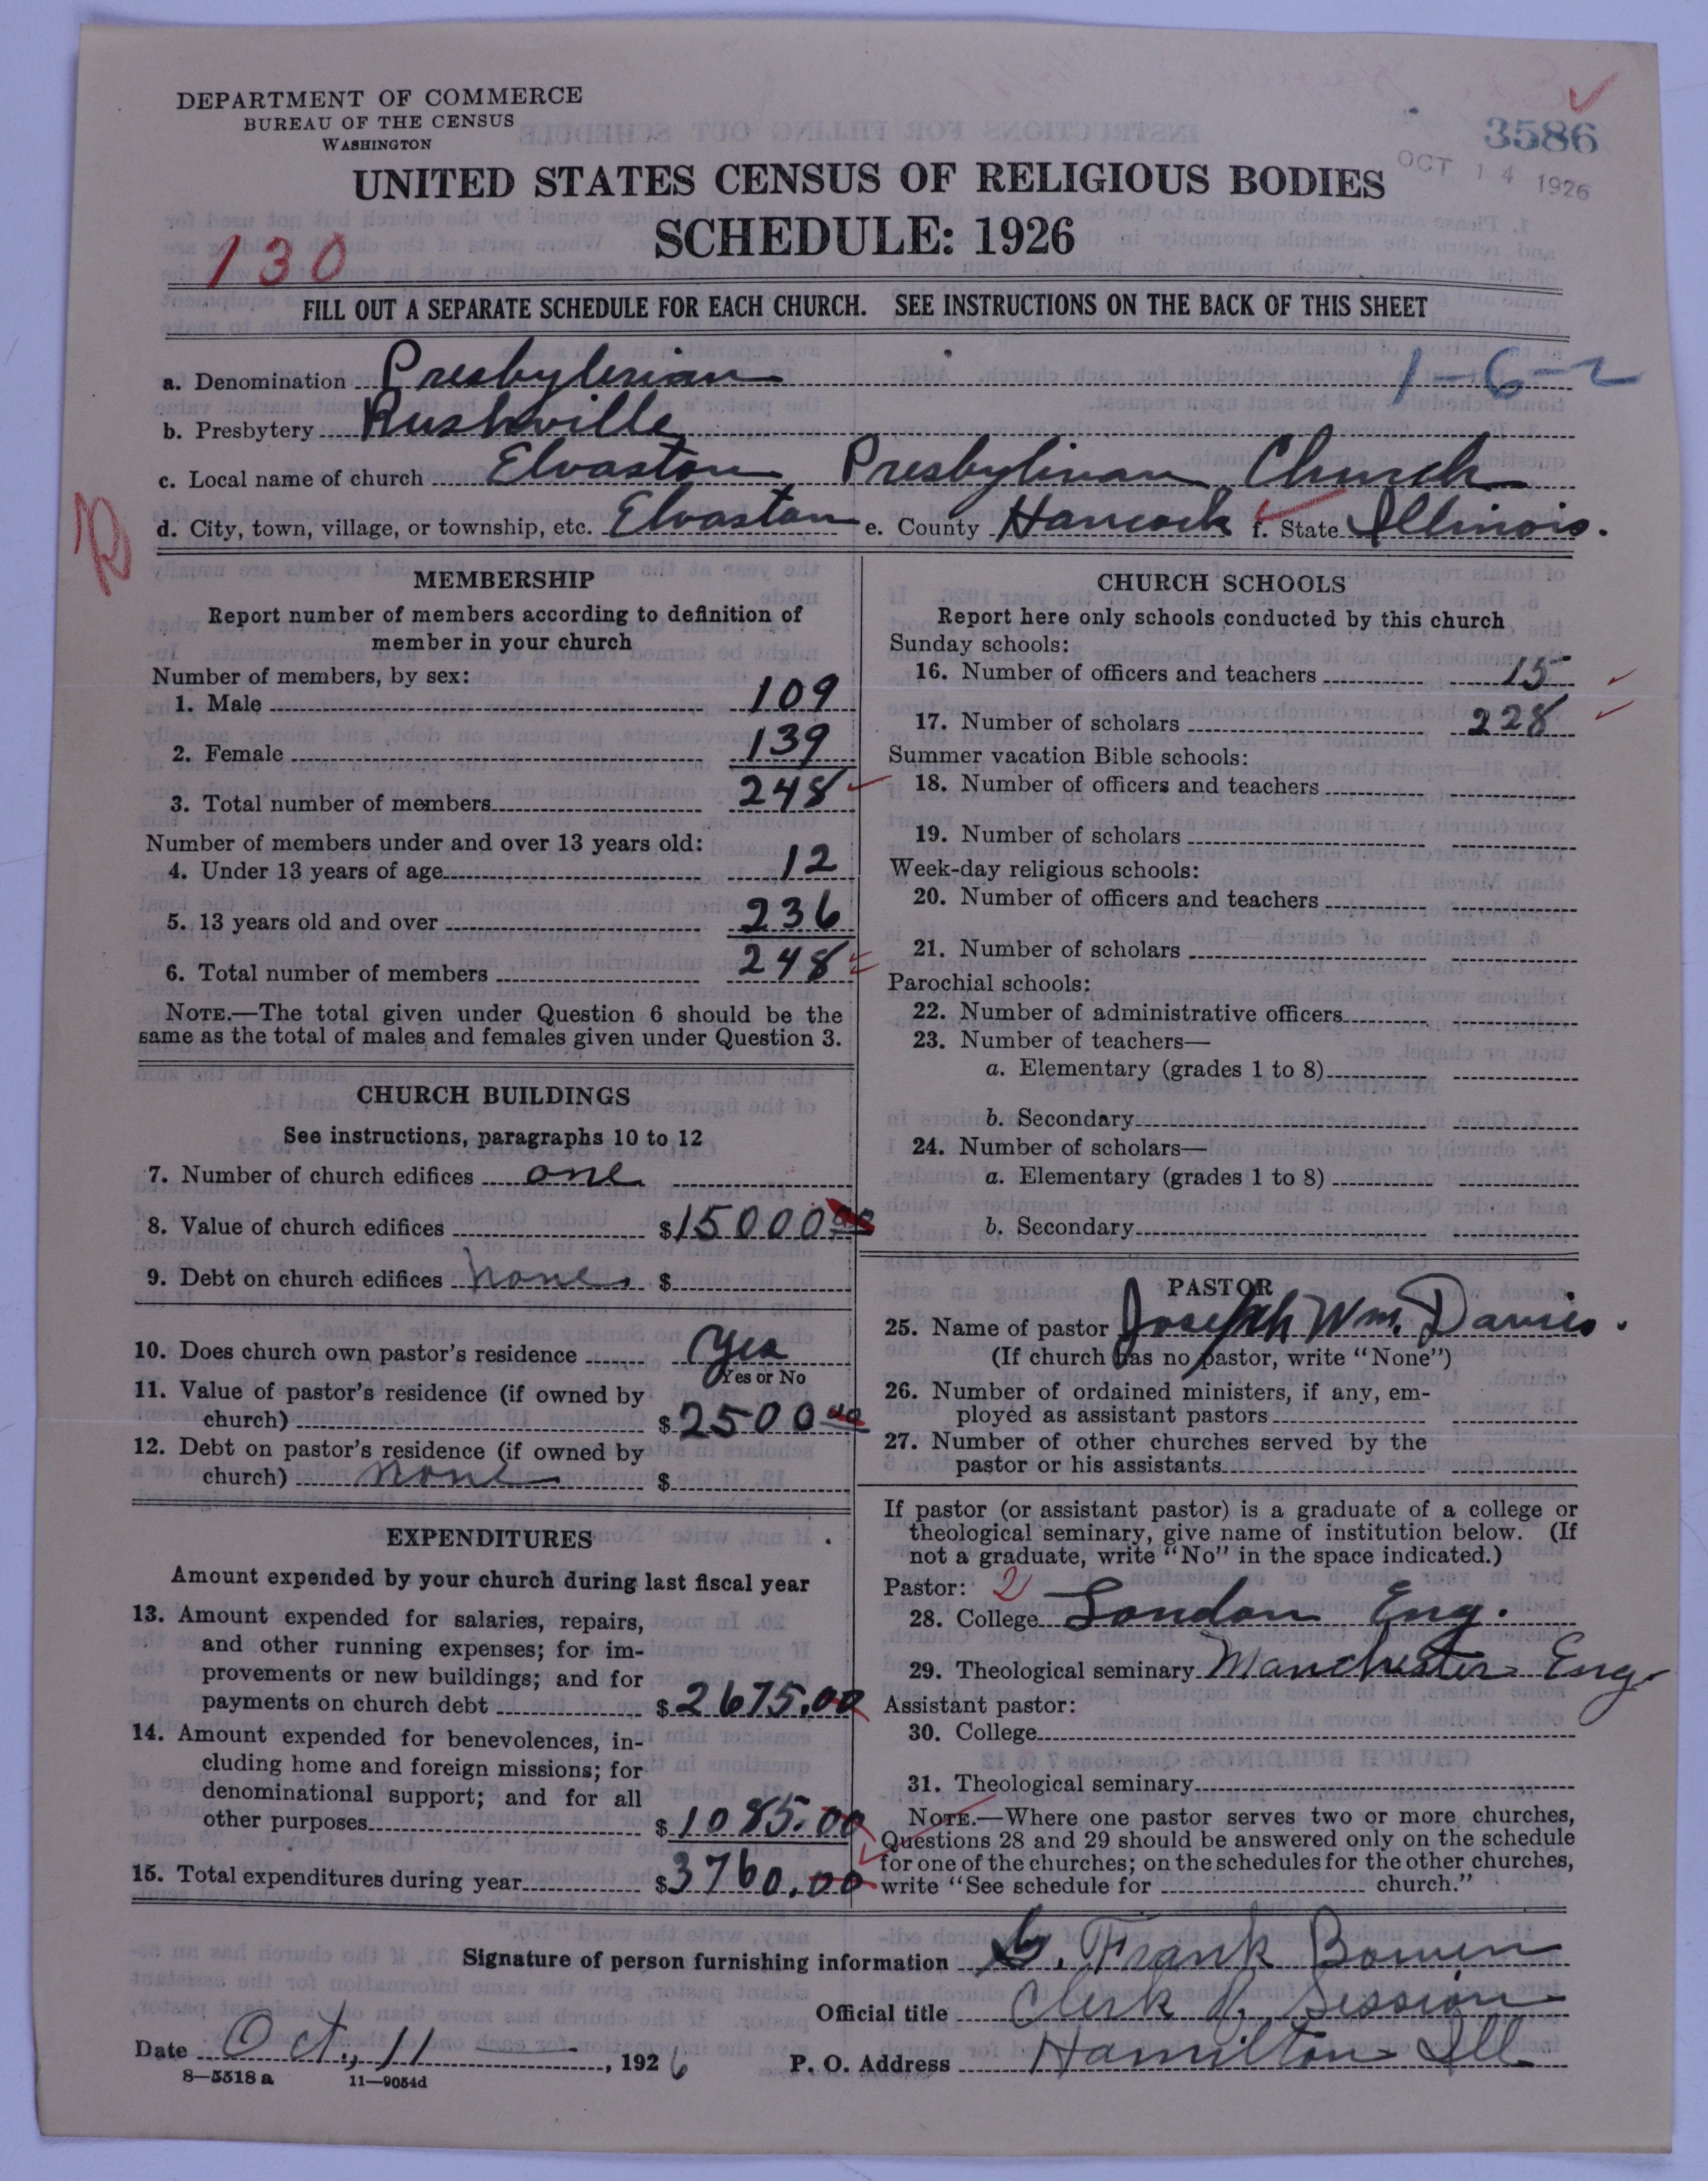 DEPARTMENT OF COMMERCE
BUREAU OF THE CENSUS
WASHINGTON
3586
OCT 14 1926
UNITED STATES CENSUS OF RELIGIOUS BODIES
SCHEDULE: 1926
130
FILL OUT A SEPARATE SCHEDULE FOR EACH CHURCH. SEE INSTRUCTIONS ON THE BACK OF THIS SHEET
1-6-2
a. Denomination Presbyterian
b. Presbytery Rushville
c. Local name of church Elvaston Presbyterian Church
d. City, town, village, or township, etc. Elvaston e. County Hancock f. State Illinois.
R
MEMBERSHIP
Report number of members according to definition of
member in your church
Number of members, by sex:
1. Male 109
2. Female 139
3. Total number of members 248
Number of members under and over 13 years old:
4. Under 13 years of age 12
5. 13 years old and over 236
6. Total number of members 248
NOTE.—The total given under Question 6 should be the
same as the total of males and females given under Question 3.
CHURCH BUILDINGS
See instructions, paragraphs 10 to 12
7. Number of church edifices one
8. Value of church edifices $15000.00
9. Debt on church edifices none $
10. Does church own pastor's residence Yes
Yes or No
11. Value of pastor's residence (if owned by
church) $2500 00
12. Debt on pastor's residence (if owned by
church) none $
EXPENDITURES
Amount expended by your church during last fiscal year
13. Amount expended for salaries, repairs,
and other running expenses; for im-
provements or new buildings; and for
payments on church debt $2675.00
14. Amount expended for benevolences, in-
cluding home and foreign missions; for
denominational support; and for all
other purposes $1085.00
15. Total expenditures during year $3760.00
CHURCH SCHOOLS
Report here only schools conducted by this church
Sunday schools:
16. Number of officers and teachers 15
17. Number of scholars 228
Summer vacation Bible schools:
18. Number of officers and teachers
19. Number of scholars
Week-day religious schools:
20. Number of officers and teachers
21. Number of scholars
Parochial schools:
22. Number of administrative officers
23. Number of teachers—
a. Elementary (grades 1 to 8)
b. Secondary
24. Number of scholars—
a. Elementary (grades 1 to 8)
b. Secondary
PASTOR
25. Name of pastor Joseph Wm. Davies.
(If church has no pastor, write "None")
26. Number of ordained ministers, if any, em-
ployed as assistant pastors
27. Number of other churches served by the
pastor or his assistants
If pastor (or assistant pastor) is a graduate of a college or
theological seminary, give name of institution below. (If
not a graduate, write "No" in the space indicated.)
Pastor: 2
28. College London Eng.
29. Theological seminary Manchester Eng.
Assistant pastor:
30. College
31. Theological seminary
NOTE.—Where one pastor serves two or more churches,
Questions 28 and 29 should be answered only on the schedule
for one of the churches; on the schedules for the other churches,
write "See schedule for church."
Signature of person furnishing information Frank Bowen
Official title Clerk of Session
Date Oct, 11 , 1926 P. O. Address Hamilton Ill
8—5518 a 11—9054d